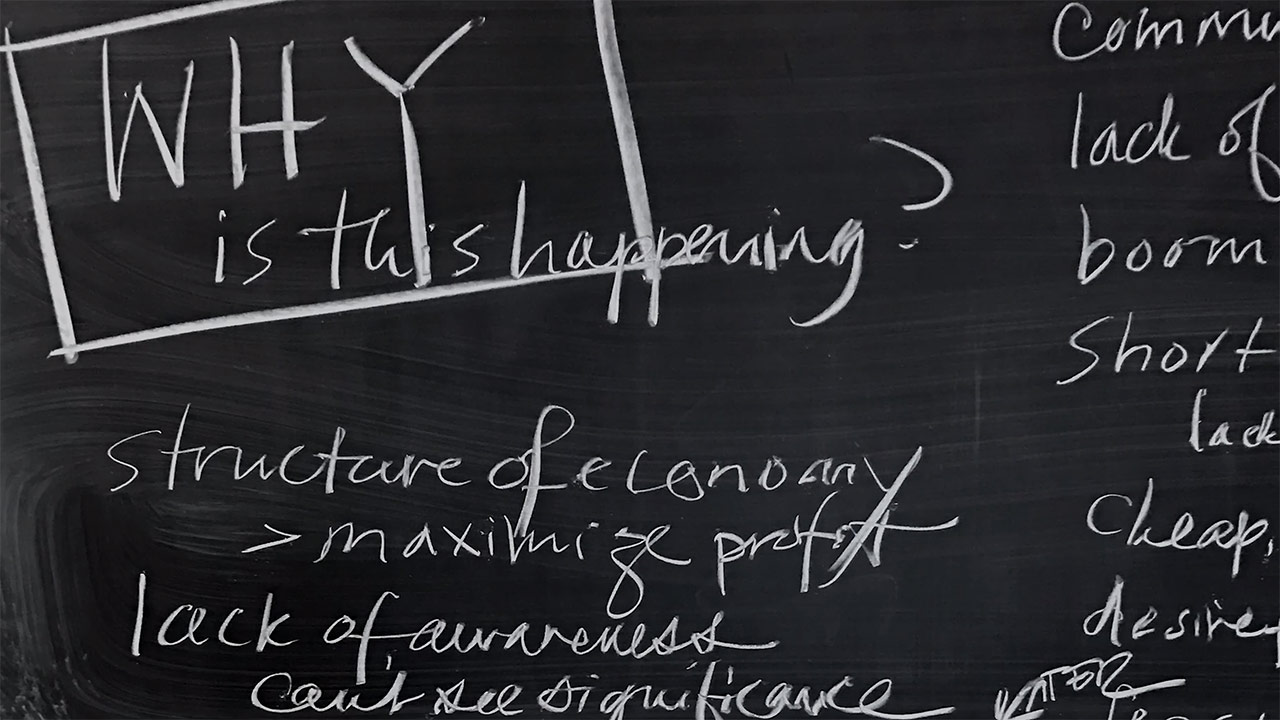 WHY
is this happening?
structure of economy
> maximize profit
lack of awareness
can't see significance
Commu
lack of
boom
Short
lack
Cheap,
desire